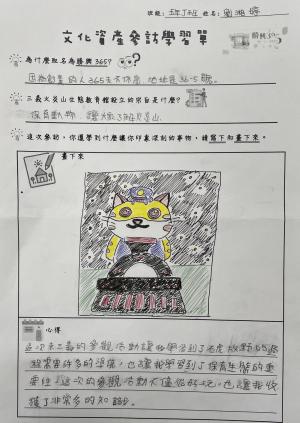 班級：五年丁班 姓名：劉
文化資產參訪學習單
為什麼取名為勝興365?
因為創業的人365天不休息，地址是365號。
三義火炎山生態教育館設立的宗旨是什麼？
保育動物，讓大家了解火炎山。
這次參訪，你還學到什麼讓你印象深刻的事物，請寫下和畫下來。
畫下來
心得
這次來三義的參觀活動讓我學習到了石虎放野的過
程需要許多的準備，也讓我學習到了保育生態的重
要性，這次的參觀活動不僅很好玩，也讓我收
獲了非常多的知識。